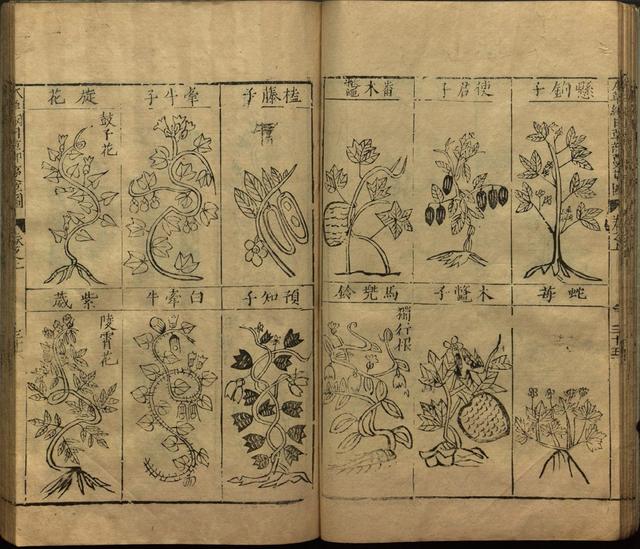 懸鉤子
使君子
番木鼈
蛇苺
木鼈子
馬兠鈴
獨行根
榼藤子
牽牛子
旋花
鼓子花
預知子
白牽牛
紫葳
陵霄花